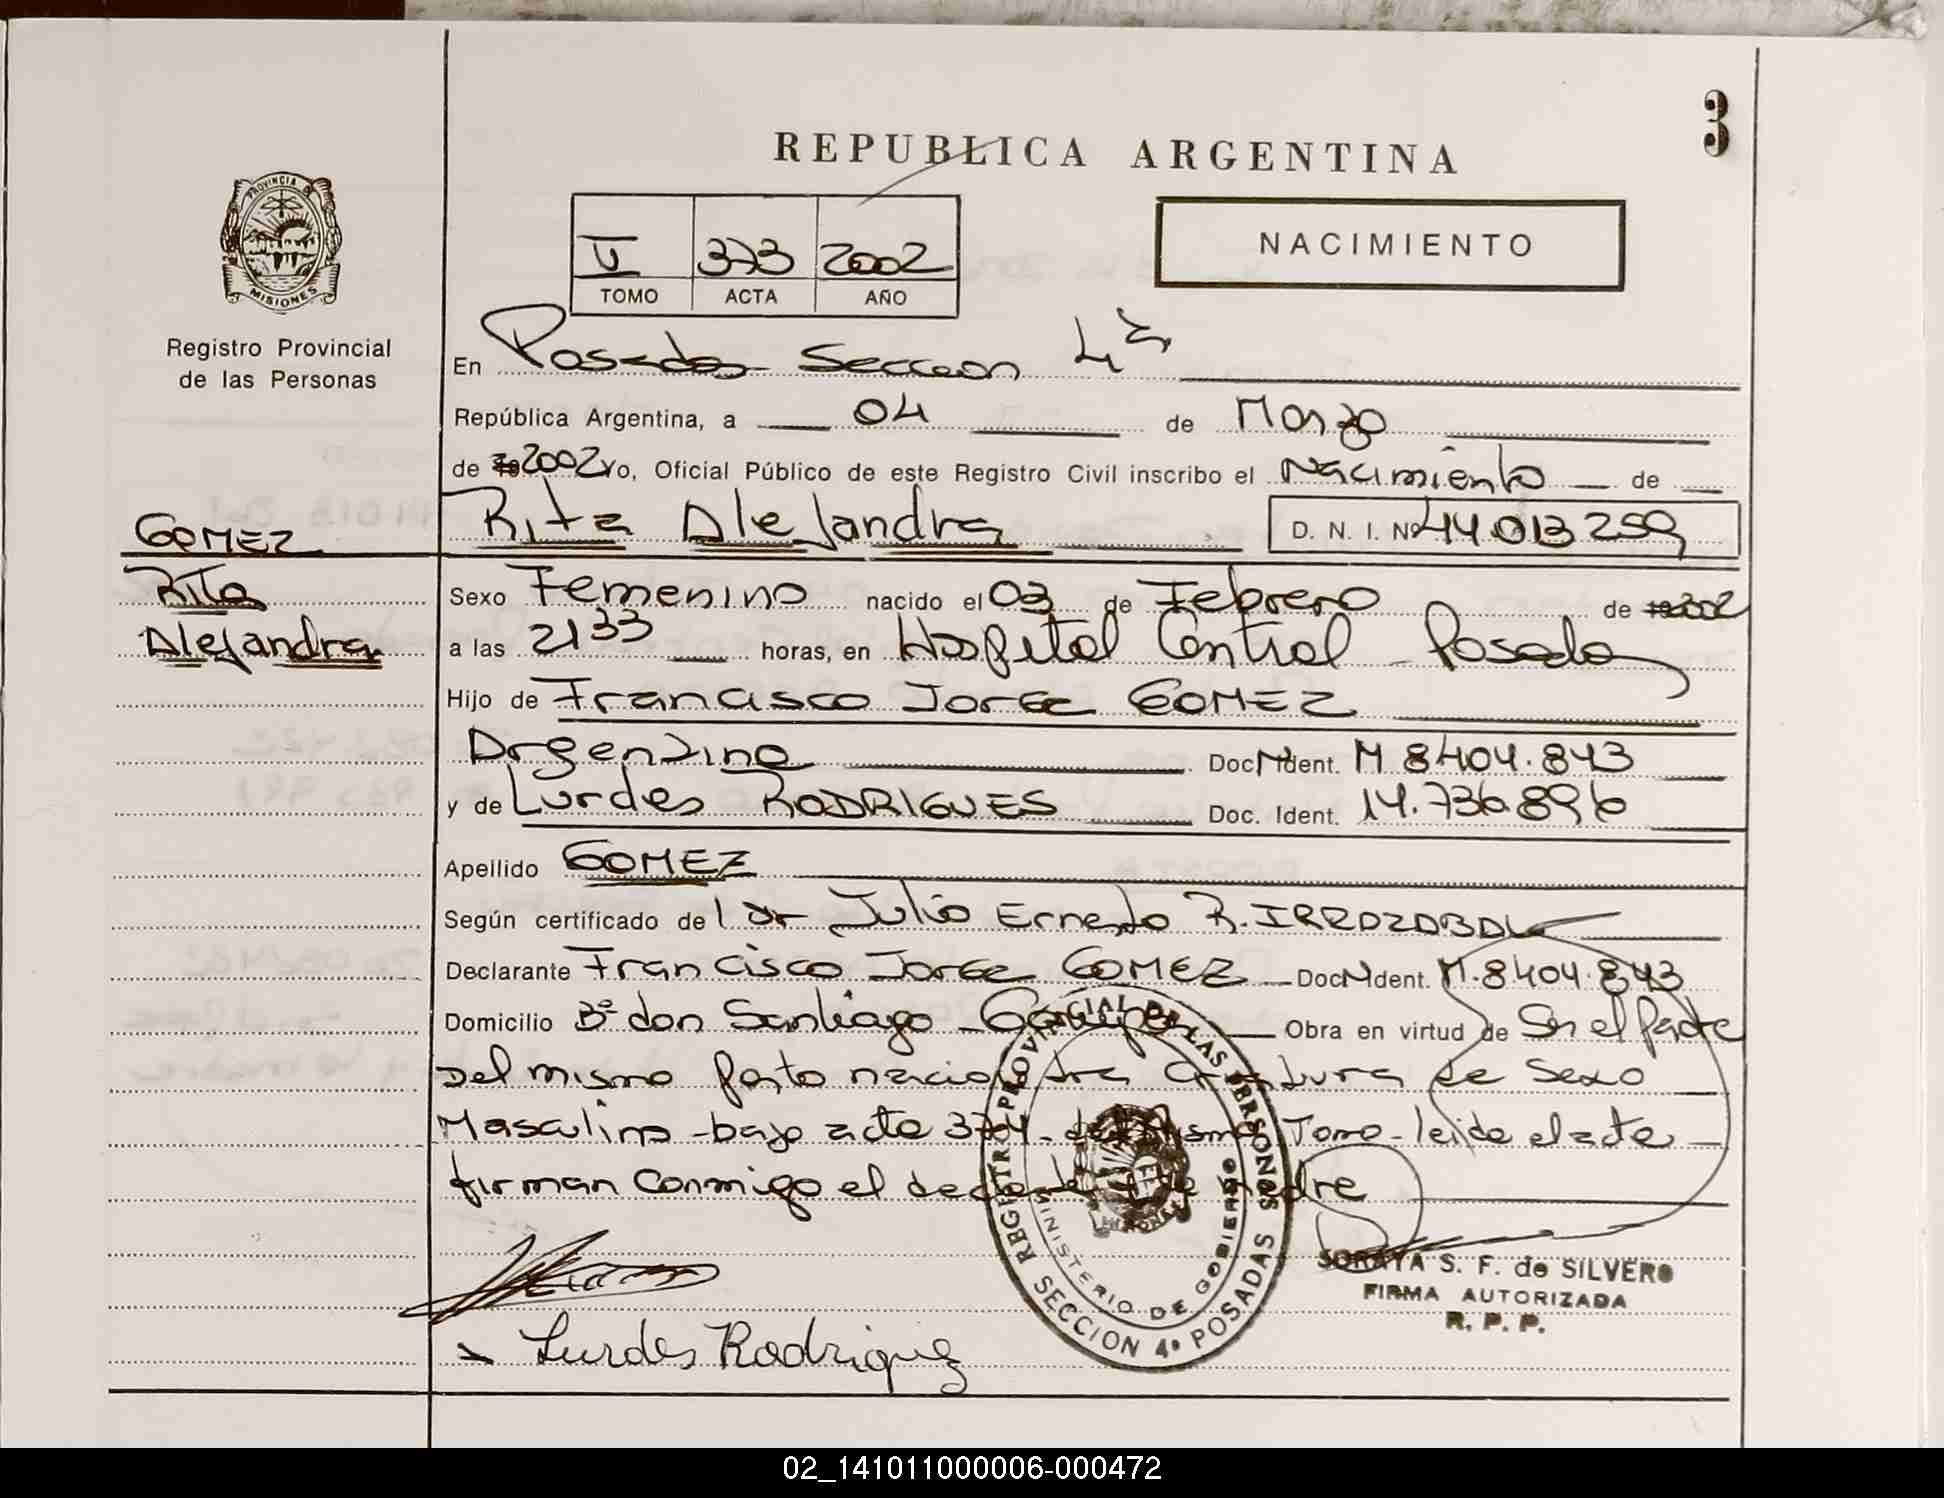 3
REPUBLICA ARGENTINA
PROVINCIA DE
MISIONES
Registro Provincial
de las Personas
V 373 2002
TOMO ACTA AÑO
NACIMIENTO
En Posadas Seccion 4ta
República Argentina, a 04 de Marzo
de 2002 yo, Oficial Público de este Registro Civil inscribo el Nacimiento de
GOMEZ
Rita Alejandra D. N. I. Nº 44 013 259
Rita
Alejandra
Sexo Femenino nacido el 03 de Febrero de 2002
a las 21 33 horas, en Hospital Central Posadas
Hijo de Francisco Jorge GOMEZ
Argentino Doc. Ident. M 8404.843
y de Lurdes RODRIGUES Doc. Ident. 14.736.896
Apellido GOMEZ
Según certificado del Dr Julio Ernesto R. IRRAZABAL
Declarante Francisco Jorge GOMEZ Doc. Ident. M. 8404.843
Domicilio Bº don Santiago - Garupa Obra en virtud de Ser el Padre
Del mismo parto nacio otra criatura de Sexo
Masculino - bajo acta 374 - del mismo Tomo - leida el acta
firman conmigo el declarante y la madre
REGISTRO PROVINCIAL DE LAS PERSONAS
MINISTERIO DE GOBIERNO
SECCION 4ª POSADAS
SORAYA S. F. de SILVERO
FIRMA AUTORIZADA
R. P. P.
Lurdes Rodriguez
02_141011000006-000472